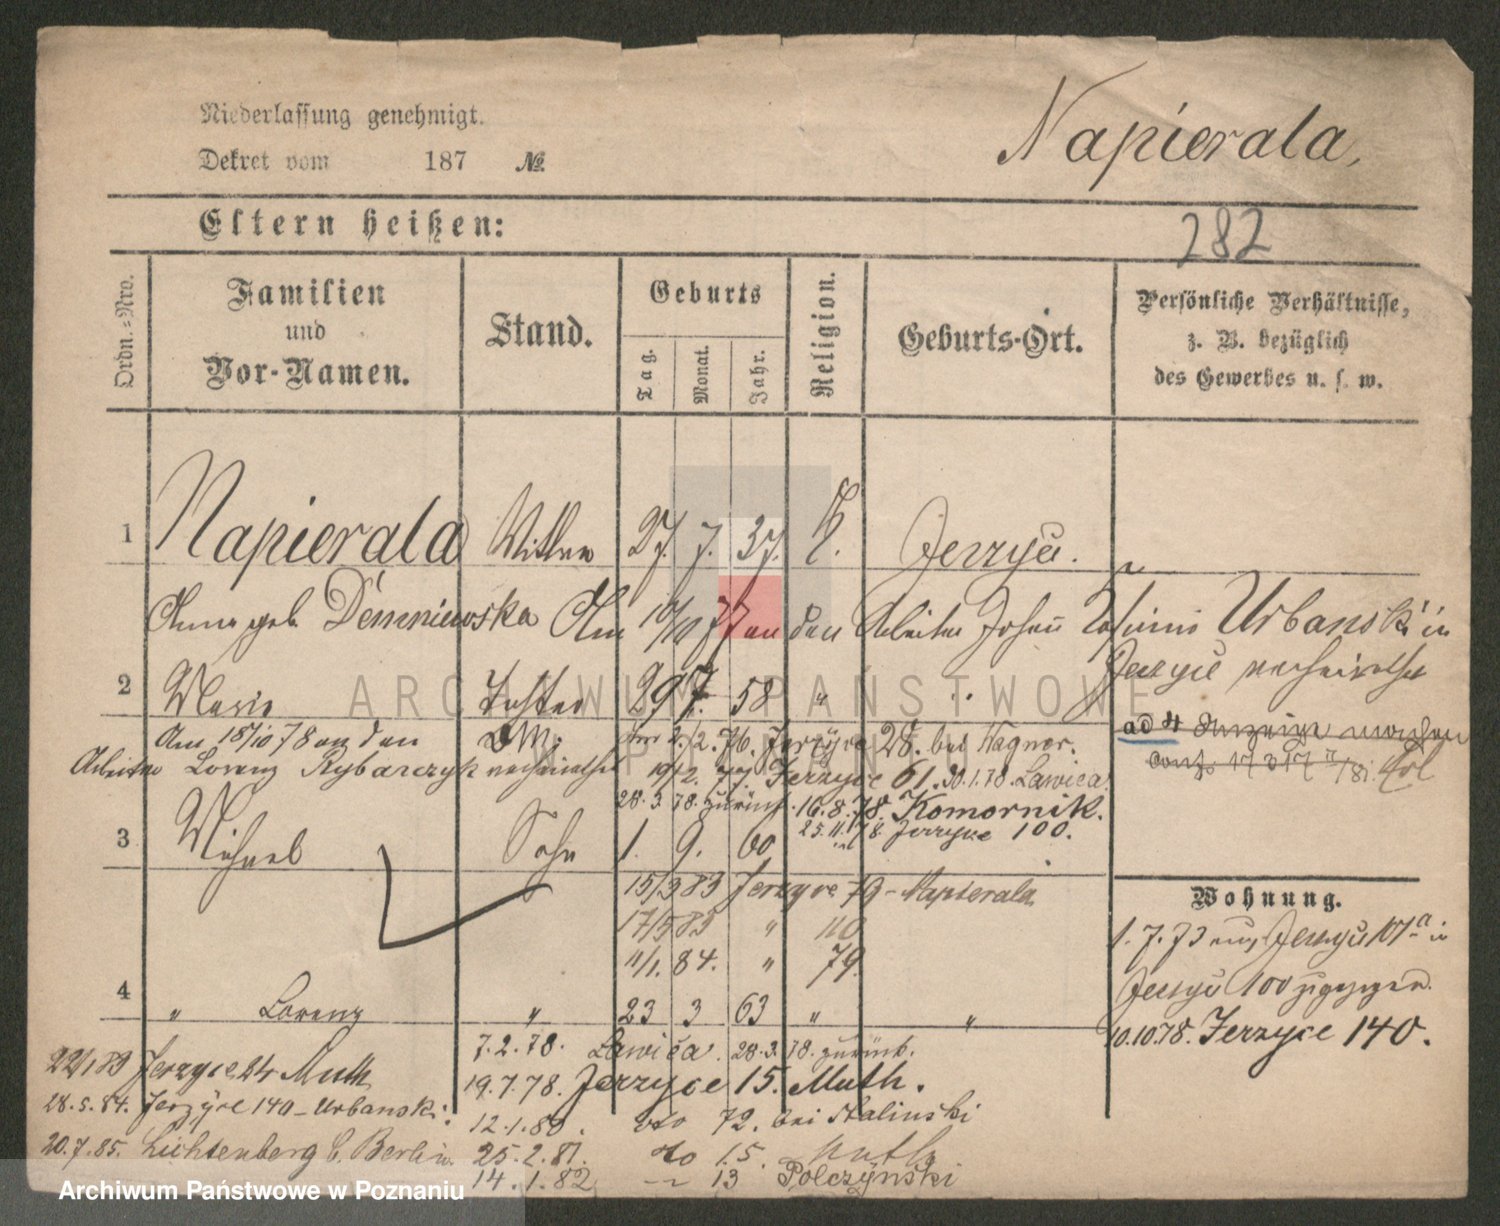 Niederlassung genehmigt.
Dekret vom 187 №
Napierala,
Eltern heißen:
282
Ordn.=Nro.
Familien
und
Vor-Namen.
Stand.
Geburts
Tag.
Monat.
Jahr.
Religion.
Geburts-Ort.
Persönliche Verhältnisse,
z. B. bezüglich
des Gewerbes u. s. w.
1 Napierala Wittwe 27. 7. 37. K. Jerzyce.
Anna geb. Am 10/10 77 an den Arbeiter Johann Urbanski in
Jerzyce verheirathet
2 Maria Tochter 29 7. 58 " "
Am 18/10 78 an den
Arbeiter Lorenz Rybarczyk verheirathet
2./2. 76. Jerzyce 28. bei Wagner.
19/2. 77. Jerzyce 61. 30.1.78. Lawica
28.3.78. zurück. 16.8.78. Komornik.
25.11.78. Jerzyce 100.
ad 4 Anzeige machen
3 Michael Sohn 1. 9. 60
15/3 83 Jerzyce 79 - Napierala
17/5 83 " 110
11/1. 84. " 79.
Wohnung.
1. 7. 73 aus Jerzyce 107a in
Jerzyce 100 zugezogen.
10.10.78. Jerzyce 140.
4 " Lorenz " 23 3 63 " "
7.2.78. Lawica. 28.3.78. zurück.
19.7.78. Jerzyce 15. Muth.
12.1.80. dto 72. bei Stalinski
25.2.81. dto 15. Muth
14.1.82 13 Polczynski
22/1 83 Jerzyce 24 Muth
28.5.84. Jerzyce 140 - Urbanski.
20.7.85. Lichtenberg b. Berlin.
ARCHIWUM PAŃSTWOWE
W POZNANIU
Archiwum Państwowe w Poznaniu